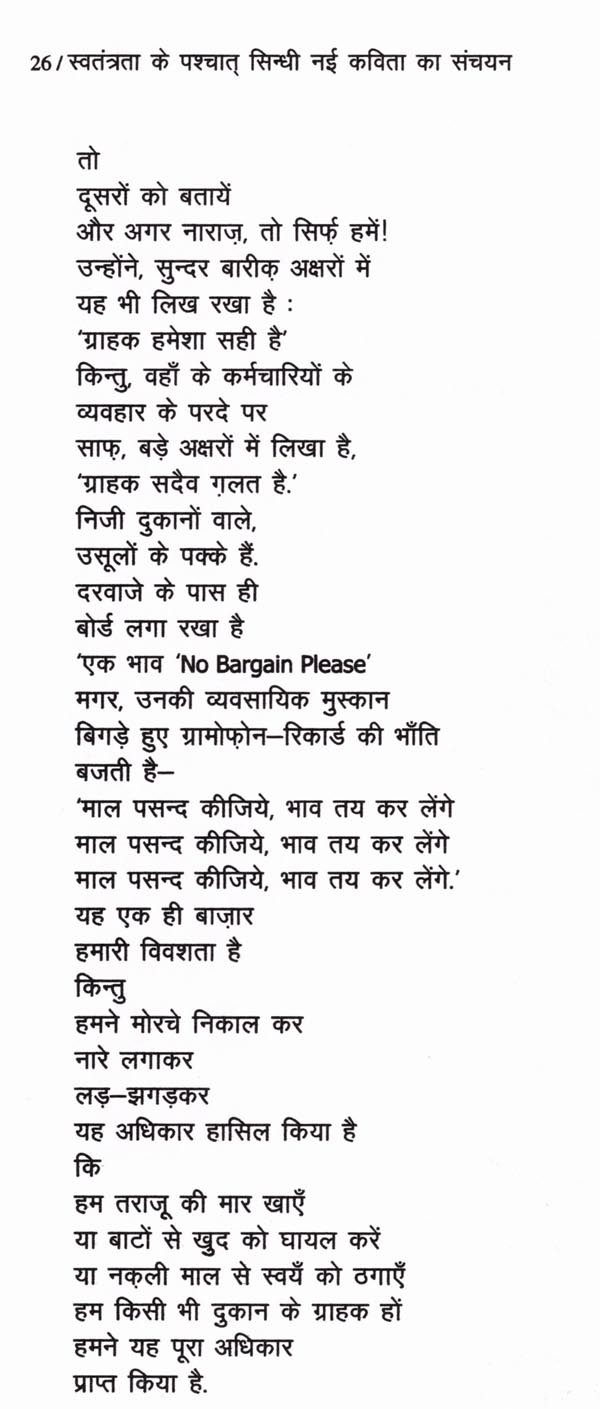 26 / स्वतंत्रता के पश्चात् सिन्धी नई कविता का संचयन
तो
दूसरों को बतायें
और अगर नाराज़, तो सिर्फ़ हमें!
उन्होंने, सुन्दर बारीक़ अक्षरों में
यह भी लिख रखा है :
‘ग्राहक हमेशा सही है’
किन्तु, वहाँ के कर्मचारियों के
व्यवहार के परदे पर
साफ़, बड़े अक्षरों में लिखा है,
‘ग्राहक सदैव ग़लत है.’
निजी दुकानों वाले,
उसूलों के पक्के हैं.
दरवाजे के पास ही
बोर्ड लगा रखा है
‘एक भाव ‘No Bargain Please’
मगर, उनकी व्यवसायिक मुस्कान
बिगड़े हुए ग्रामोफ़ोन–रिकार्ड की भाँति
बजती है–
‘माल पसन्द कीजिये, भाव तय कर लेंगे
माल पसन्द कीजिये, भाव तय कर लेंगे
माल पसन्द कीजिये, भाव तय कर लेंगे.’
यह एक ही बाज़ार
हमारी विवशता है
किन्तु
हमने मोरचे निकाल कर
नारे लगाकर
लड़–झगड़कर
यह अधिकार हासिल किया है
कि
हम तराजू की मार खाएँ
या बाटों से खुद को घायल करें
या नक़ली माल से स्वयँ को ठगाएँ
हम किसी भी दुकान के ग्राहक हों
हमने यह पूरा अधिकार
प्राप्त किया है.